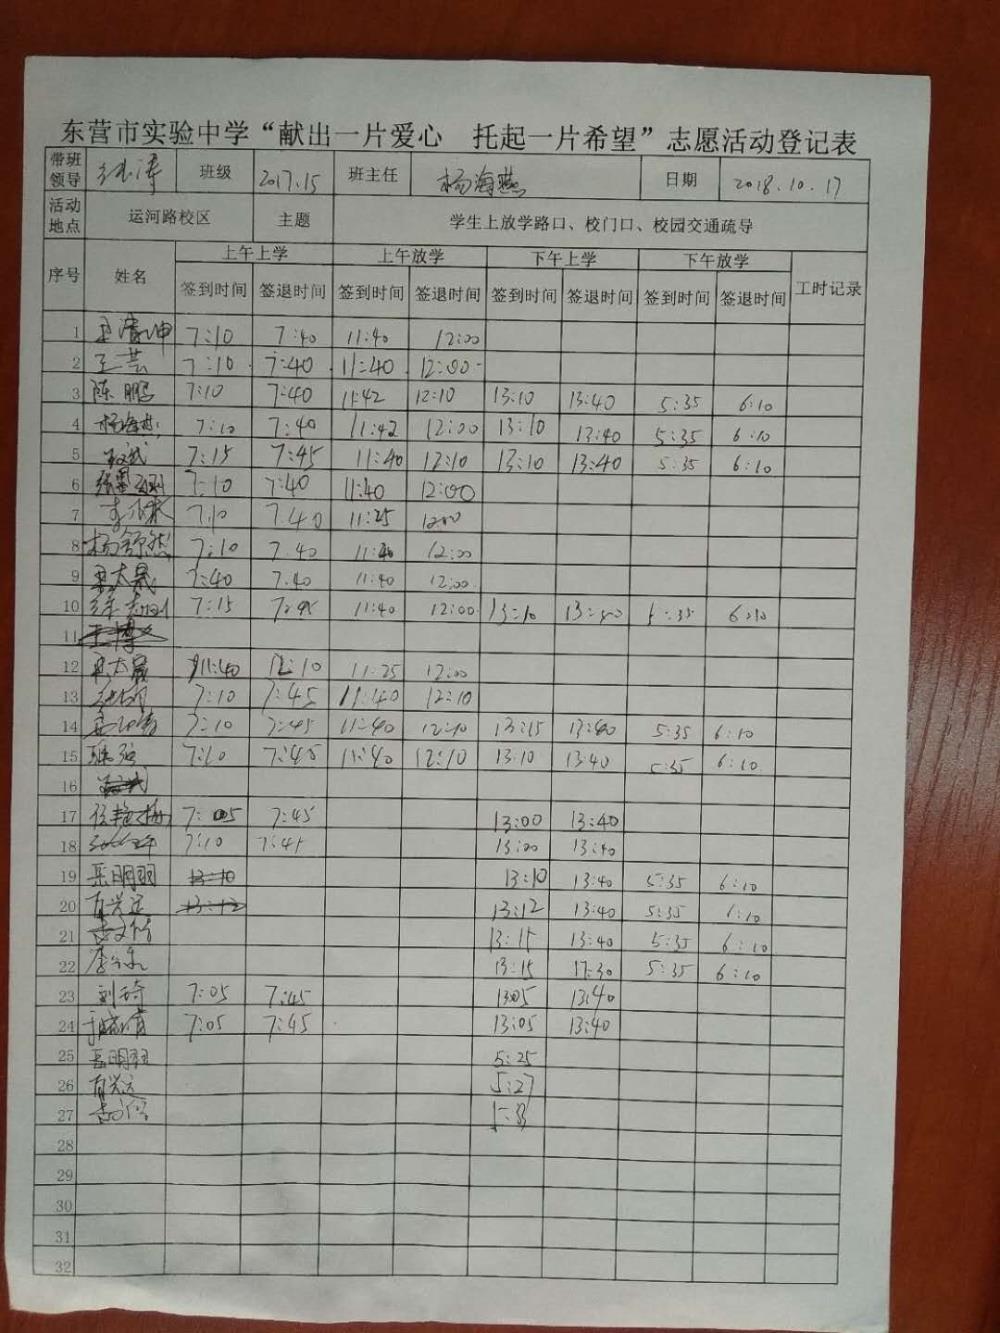 东营市实验中学“献出一片爱心 托起一片希望”志愿活动登记表
带班领导 班级 2017.15 班主任 杨海燕 日期 2018.10.17
活动地点 运河路校区 主题 学生上放学路口、校门口、校园交通疏导
序号 姓名 上午上学 上午放学 下午上学 下午放学 工时记录
签到时间 签退时间 签到时间 签退时间 签到时间 签退时间 签到时间 签退时间
1 7:10 7:40 11:40 12:00
2 王芸 7:10 7:40 11:40 12:00
3 陈鹏 7:10 7:40 11:42 12:10 13:10 13:40 5:35 6:10
4 杨海燕 7:10 7:40 11:42 12:00 13:10 13:40 5:35 6:10
5 7:15 7:45 11:40 12:10 13:10 13:40 5:35 6:10
6 7:10 7:40 11:40 12:00
7 7:10 7.40 11:25 12:00
8 杨舒然 7:10 7.40 11:40 12:00
9 7:40 7.40 11:40 12:00
10 7:15 7:45 11:40 12:00 13:10 13:40 5:35 6:10
11 王博
12 11:40 12:10 11:25 12:00
13 7:10 7:45 11:40 12:10
14 7:10 7:45 11:40 12:10 13:15 13:40 5:35 6:10
15 7:10 7:45 11:40 12:10 13:10 13:40 5:35 6:10
16
17 任艳梅 7:05 7:45 13:00 13:40
18 7:10 7:45 13:00 13:40
19 岳明羽 13:10 13:10 13:40 5:35 6:10
20 13:12 13:12 13:40 5:35 6:10
21 13:15 13:40 5:35 6:10
22 13:15 17:30 5:35 6:10
23 刘琦 7:05 7:45 13:05 13:40
24 7:05 7:45 13:05 13:40
25 岳明羽 5:25
26 5:27
27
28
29
30
31
32